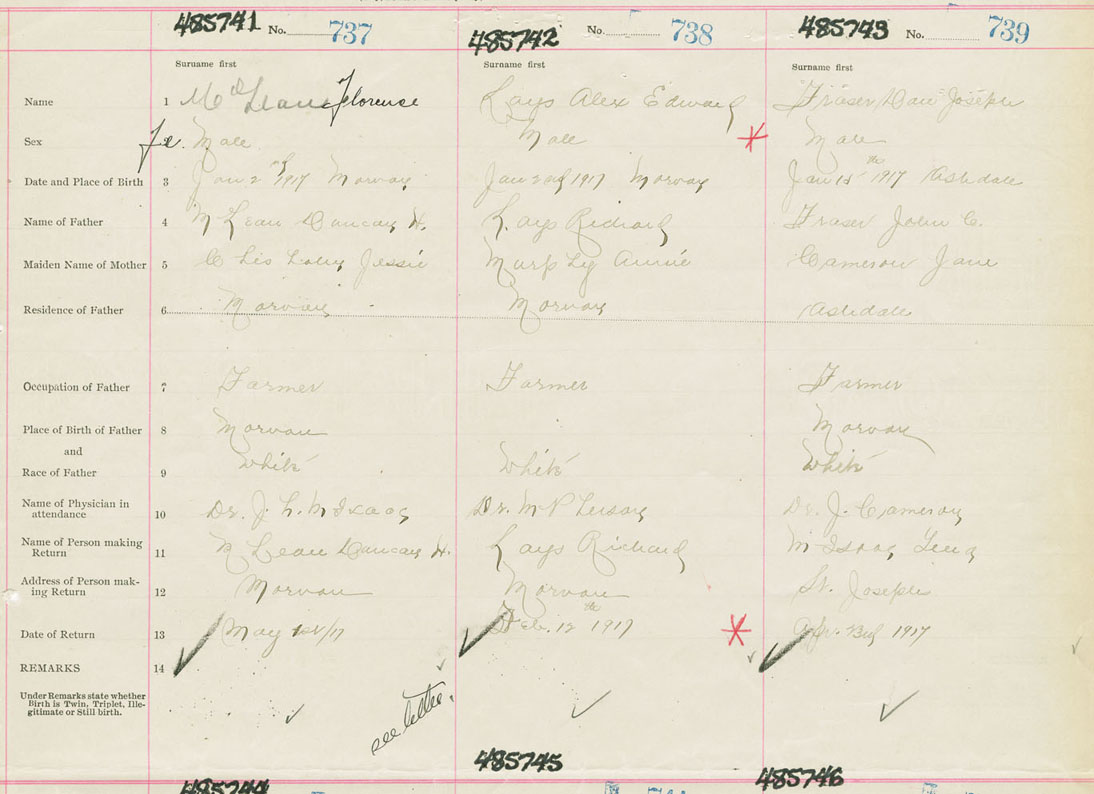 485741 No. 737 485742 No. 738 485743 No. 739
Surname first Surname first Surname first
Name 1 McLean Florense Kays Alex Edward Fraser Dan Joseph
Sex 2 Fe Male Male Male
Date and Place of Birth 3 Jan 2nd 1917 Morvan Jan 2nd 1917 Morvan Jan 15th 1917 Ashdale
Name of Father 4 McLean Duncan H. Kays Richard Fraser John C.
Maiden Name of Mother 5 Chisholm Jessie Murphy Annie Cameron Jane
Residence of Father 6 Morvan Morvan Ashdale
Occupation of Father 7 Farmer Farmer Farmer
Place of Birth of Father 8 Morvan Morvan
and
Race of Father 9 White White White
Name of Physician in
attendance 10 Dr. J. McIsaac Dr. McPherson Dr. J. Cameron
Name of Person making
Return 11 McLean Duncan H. Kays Richard McIsaac
Address of Person mak-
ing Return 12 Morvan Morvan St. Joseph
Date of Return 13 May 1st/17 Feb. 12th 1917 Apr. 3rd 1917
REMARKS 14
Under Remarks state whether
Birth is Twin, Triplet, Ille-
gitimate or Still birth.
see letter.
485744 485745 485746